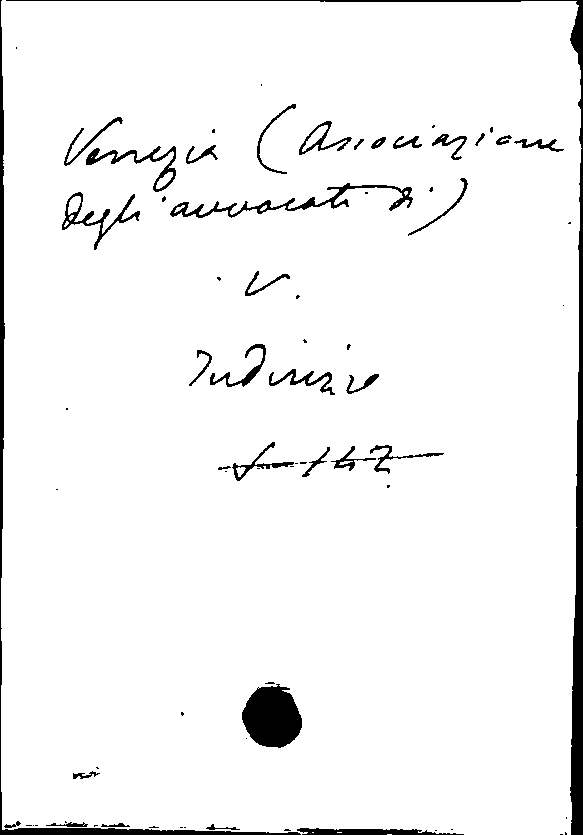 Venezia (Associazione
degli avvocati di)
V.
Indirizzo